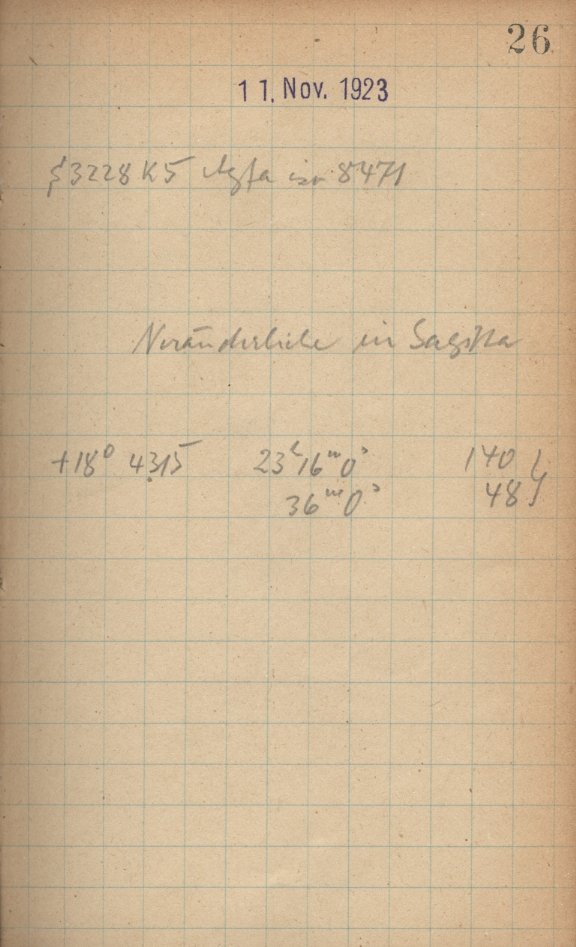 26
11. Nov. 1923
§3228 K5 Agfa iso 8471
Veränderliche in Sagitta
+18° 4315 23ʰ16ᵐ0ˢ 140
36ᵐ0ˢ 48